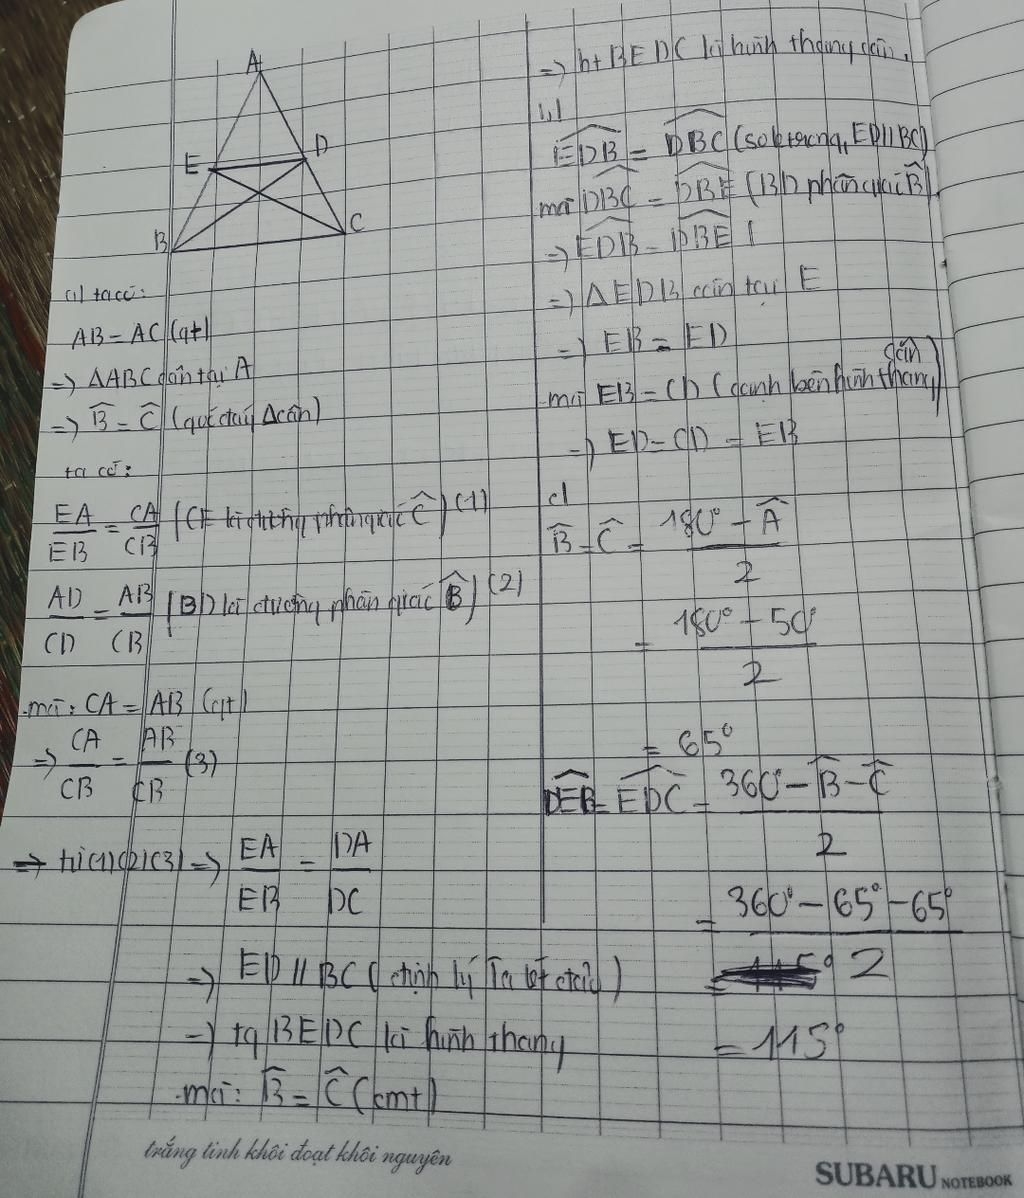 A
E D
B C
a) ta có:
AB = AC (gt)
=> ΔABC cân tại A
=> B̂ = Ĉ (góc đáy Δ cân)
ta có:
EA/EB = CA/CB (CE là đường phân giác Ĉ) (1)
AD/CD = AB/CB (BD là đường phân giác B̂) (2)
mà: CA = AB (gt)
=> CA/CB = AB/CB (3)
=> từ (1) (2) (3) => EA/EB = DA/DC
=> ED // BC (định lý Ta lét đảo)
=> tg BEDC là hình thang
mà: B̂ = Ĉ (cmt)
=> ht BEDC là hình thang cân.
b)
EDB = DBC (so le trong, ED // BC)
mà DBC = DBE (BD phân giác B̂)
=> EDB = DBE
=> ΔEDB cân tại E
=> EB = ED
mà EB = CD (cạnh bên hình thang cân)
=> ED = CD = EB
c)
B̂ = Ĉ = (180° - Â)/2
= (180° - 50°)/2
= 65°
DEB = EDC = (360° - B̂ - Ĉ)/2
= (360° - 65° - 65°)/2
= 115°
trắng tinh khôi đoạt khôi nguyên
SUBARU NOTEBOOK